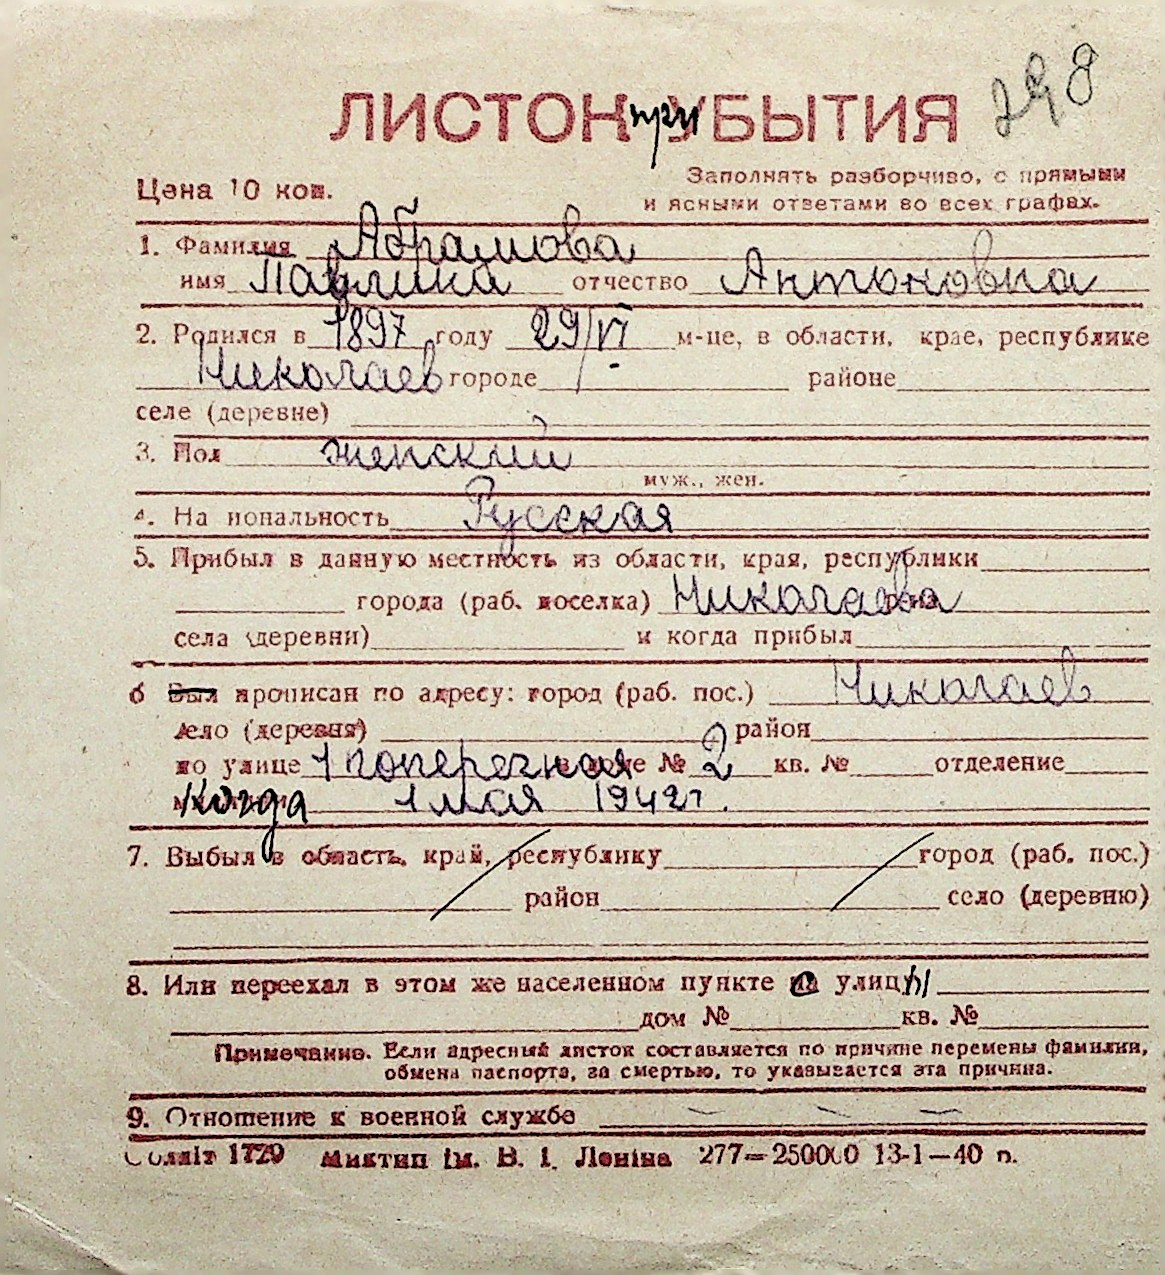 298
ЛИСТОК при УБЫТИЯ
Цена 10 коп.
Заполнять разборчиво, с прямыми
и ясными ответами во всех графах.
1. Фамилия Абрамова
имя Павлина отчество Антоновна
2. Родился в 1897 году 29/VI м-це, в области, крае, республике
Николаев городе районе
селе (деревне)
3. Пол женский
муж., жен.
4. На иональность Русская
5. Прибыл в данную местность из области, края, республики
города (раб. поселка) Николаева
села (деревни) и когда прибыл
6 Был прописан по адресу: город (раб. пос.) Николаев
село (деревня) район
по улице 1 поперечная доме № 2 кв. № отделение
Когда 1 мая 1942 г.
7. Выбыл в область, край, республику город (раб. пос.)
район село (деревню)
8. Или переехал в этом же населенном пункте с улицы
дом № кв. №
Примечание. Если адресный листок составляется по причине перемены фамилии,
обмена паспорта, за смертью, то указывается эта причина.
9. Отношение к военной службе — — —
Соллiт 1729 Миктип iм. В. I. Ленiна 277—250000 13-1—40 р.